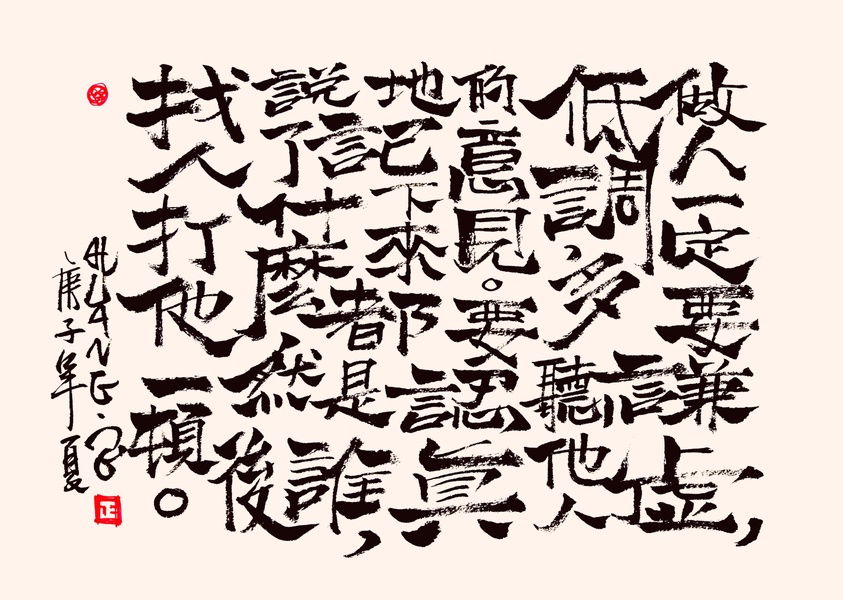 做人一定要謙虛，
低調，多聽他人
的意見。要認真
地記下來都是誰，
說了什麼然後
找人打他一頓。
HUANG.
正
庚子年夏